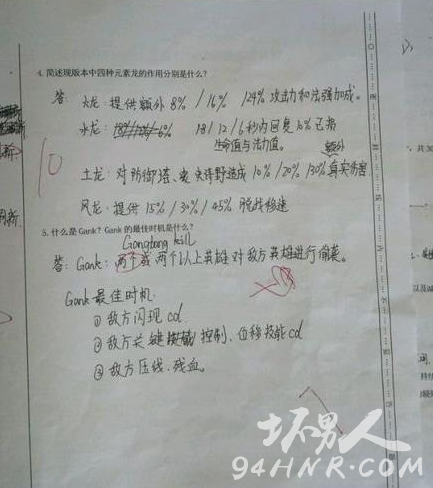 4. 简述现版本中四种元素龙的作用分别是什么?
答: 火龙: 提供额外 8% / 16% / 24% 攻击力和法强加成。
水龙: 18 / 12 / 6 秒内回复 10% 已损
生命值与法力值。 额外
土龙: 对防御塔、史诗野造成 10% / 20% / 30% 真实伤害
风龙: 提供 15% / 30% / 45% 脱战移速
10
5. 什么是Gank? Gank的最佳时机是什么?
Gangbang kill
答: Gank: 两个或两个以上英雄对敌方英雄进行偷袭。
Gank最佳时机:
① 敌方闪现 cd
② 敌方关键 控制、位移技能cd
③ 敌方压线、残血。
坏男人
94HNR.COM